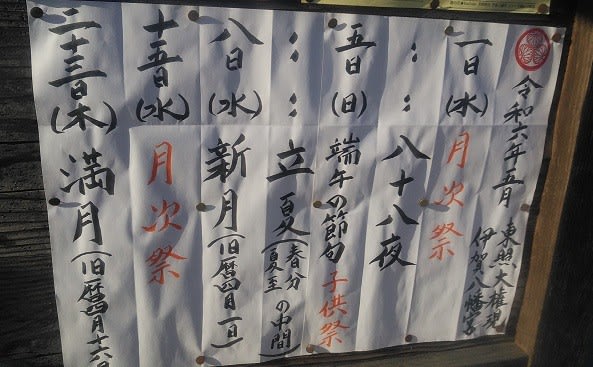 令和六年五月
東照大権現
伊賀八幡宮
一日(水) 月次祭
: : 八十八夜
五日(日) 端午の節句 子供祭
: : 立夏(春分 夏至 の中間)
八日(水) 新月(旧暦四月一日)
十五日(水) 月次祭
二十三日(木) 満月(旧暦四月十六日